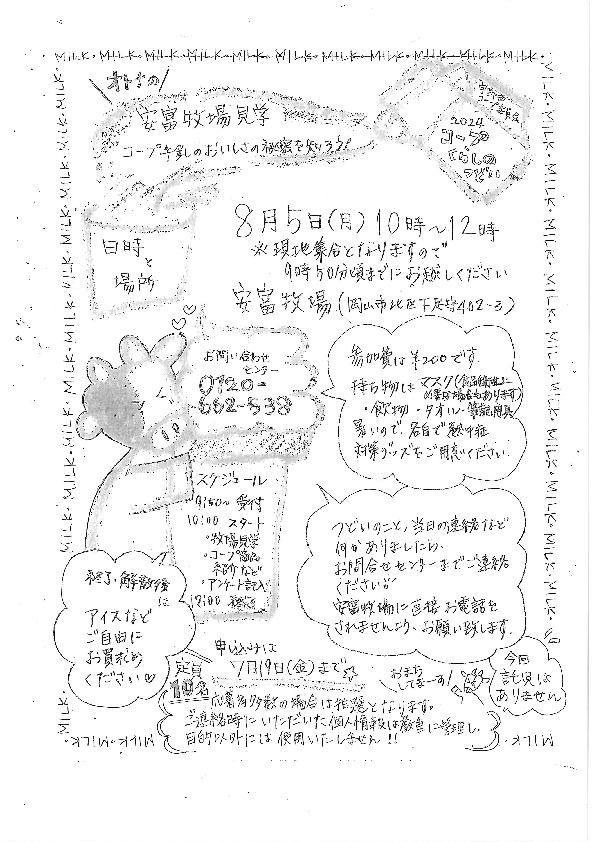 MILK・MILK・MILK・MILK・MILK・MILK・MILK・MILK・MILK
オトナの
安富牧場見学
コープ牛乳のおいしさの秘密を知ろう!
2024
コープ
くらしの
つどい
日時
と
場所
8月5日(月)10時〜12時
※現地集合となりますので
9時50分頃までにお越しください
安富牧場(岡山市北区下足守402-3)
お問い合わせ
センター
0120-
662-538
参加費は¥200です。
持ち物はマスク(食品衛生上
必要な場合もあります)
・飲物・タオル・筆記用具
暑いので、各自で熱中症
対策グッズをご用意ください
スケジュール
9:50〜受付
10:00 スタート
・牧場見学
・コープ商品
紹介など
・アンケート記入
12:00 終了
つどいのこと、当日の連絡など
何かありましたら、
お問合せセンターまでご連絡
ください
安富牧場に直接お電話を
されませんよう、お願い致します。
終了・解散後
に
アイスなど
ご自由に
お買求め
ください♡
申込みは
7月19日(金)まで
定員
10名
おまち
してまーす!
今回
託児は
ありません
応募者多数の場合は抽選となります。
ご連絡時にいただいた個人情報は厳重に管理し、
目的以外には使用いたしません!!